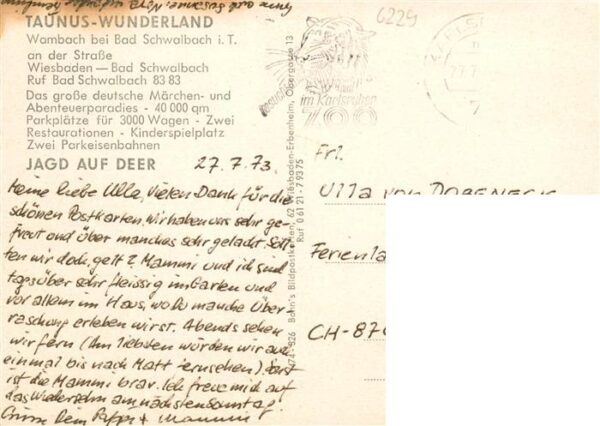 6229
TAUNUS-WUNDERLAND
Wambach bei Bad Schwalbach i. T.
an der Straße
Wiesbaden — Bad Schwalbach
Ruf Bad Schwalbach 83 83
Das große deutsche Märchen- und
Abenteuerparadies - 40 000 qm
Parkplätze für 3000 Wagen - Zwei
Restaurationen - Kinderspielplatz
Zwei Parkeisenbahnen
JAGD AUF DEER
27.7.73
Meine liebe Ulla, Vielen Dank für die
schönen Postkarten. Wir haben uns sehr ge-
freut und über manches sehr gelacht. Soll-
ten wir doch, gell? Mammi und ich sind
tagsüber sehr fleissig im Garten und
vor allem im Haus, wo Du manche Über
raschung erleben wirst. Abends sehen
wir fern (Am liebsten würden wir auf
einmal bis nach Matt fernsehen). Sonst
ist die Mammi brav. Ich freue mich auf
das Wiedersehn am nächsten Sonntag!
Dein Pappi + Mammi
im Karlsruher
ZOO
Bahn's Bildpostkarten, 62 Wiesbaden-Erbenheim, Obergasse 13
Ruf 0 61 21 - 7 93 75
Frl.
Ulla von
Ferienla
CH-87